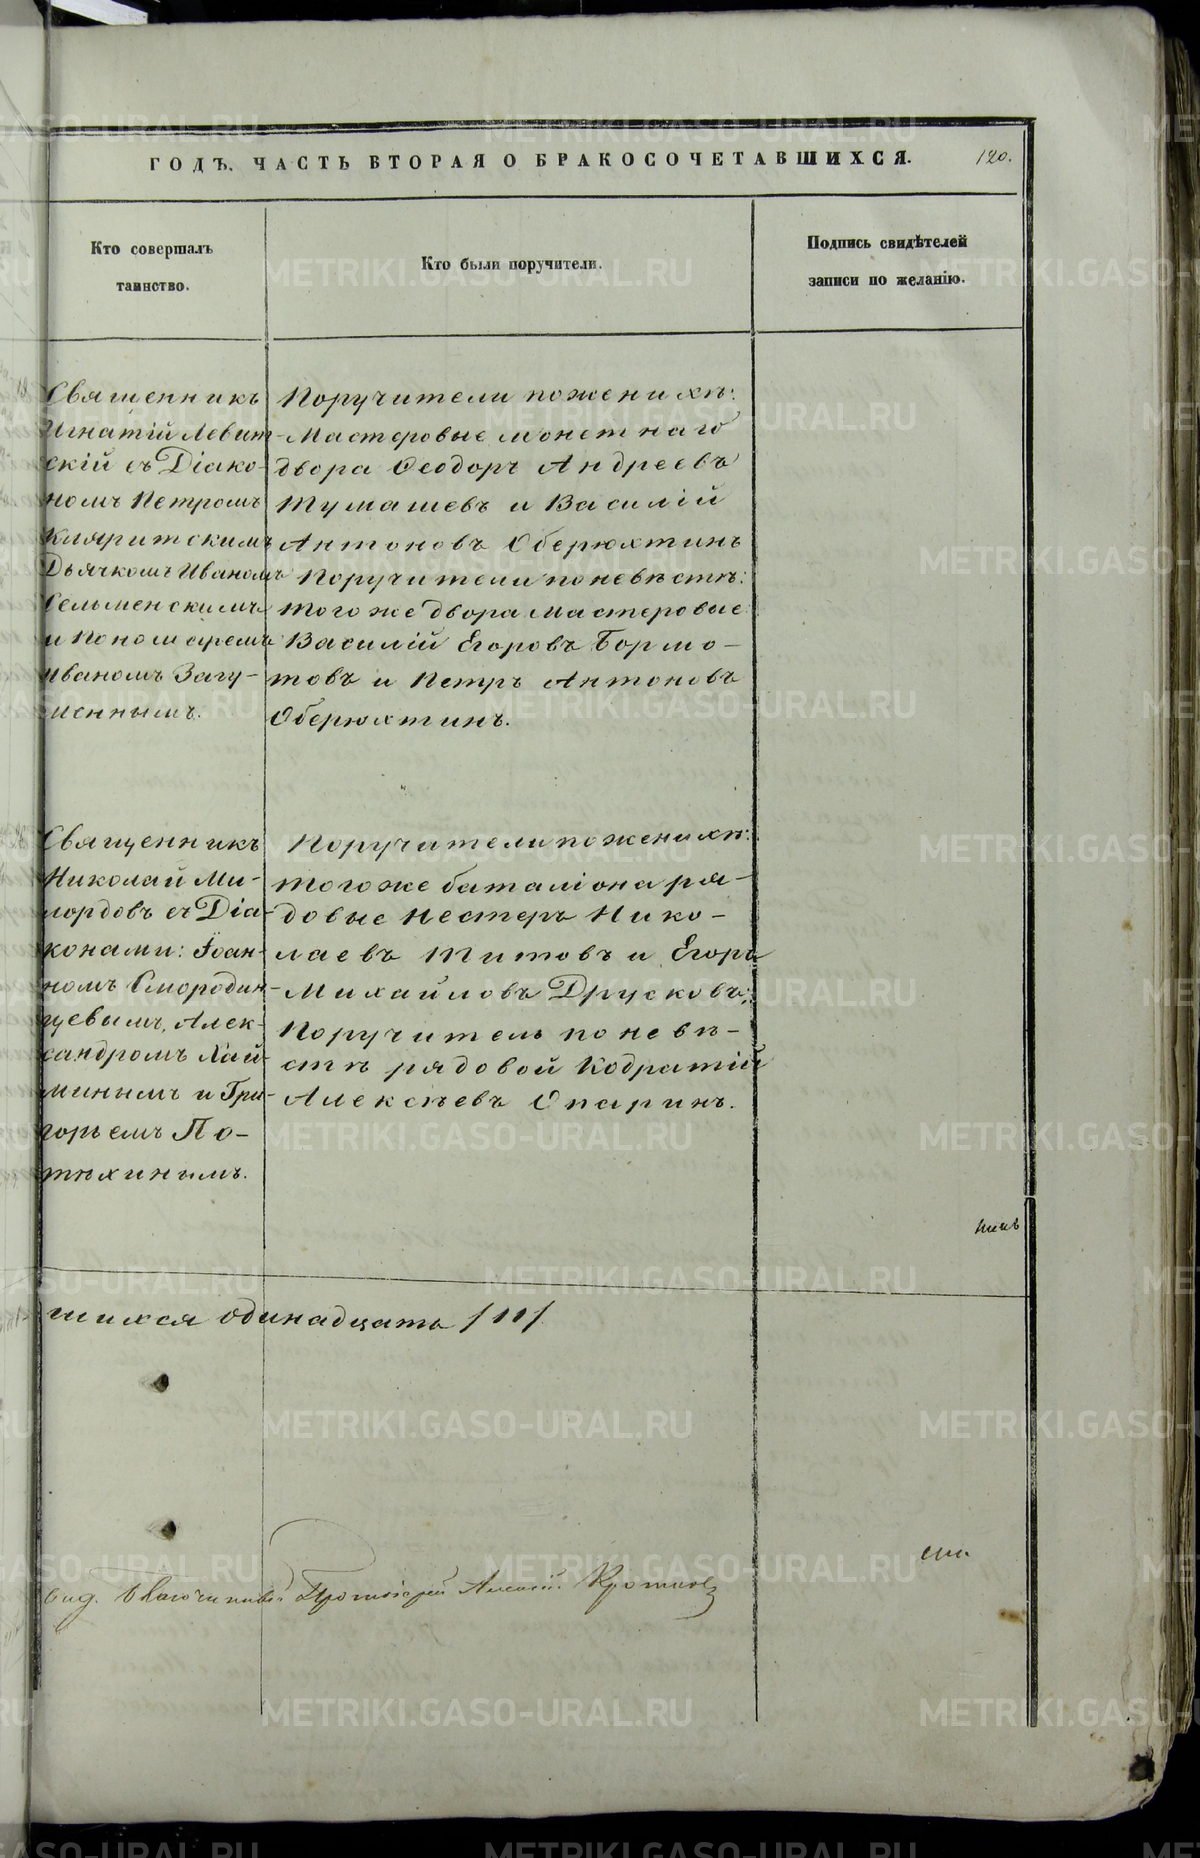 ГОДЪ. ЧАСТЬ ВТОРАЯ О БРАКОСОЧЕТАВШИХСЯ.
120.
Кто совершалъ
таинство.
Кто были поручители.
Подпись свидѣтелей
записи по желанію.
Священникъ
Игнатій Левит-
скій съ Діако-
номъ Петромъ
Кляритскимъ
Дьячкомъ Иваномъ
Сельменскимъ
и Пономаремъ
Иваномъ Загу-
меннымъ.
Поручители по женихѣ:
Мастеровые монетнаго
двора Ѳеодоръ Андреевъ
Тумашевъ и Василій
Антоновъ Оберюхтинъ
Поручители по невѣстѣ:
того же двора мастеровые
Василій Егоровъ Бормо-
товъ и Петръ Антоновъ
Оберюхтинъ.
Священникъ
Николай Ми-
лордовъ съ Діа-
конами: Іоан-
номъ Смородин-
цевымъ, Алек-
сандромъ Хай-
минымъ и Гри-
горьемъ По-
тѣхинымъ.
Поручители по женихѣ:
того же баталіона ря-
довые Нестеръ Нико-
лаевъ Титовъ и Егоръ
Михайловъ Друсковъ;
Поручитель по невѣ-
стѣ рядовой Кодратій
Алексѣевъ Опаринъ.
шихся одинадцать /11/
Благочинный Протоіерей
METRIKI.GASO-URAL.RU